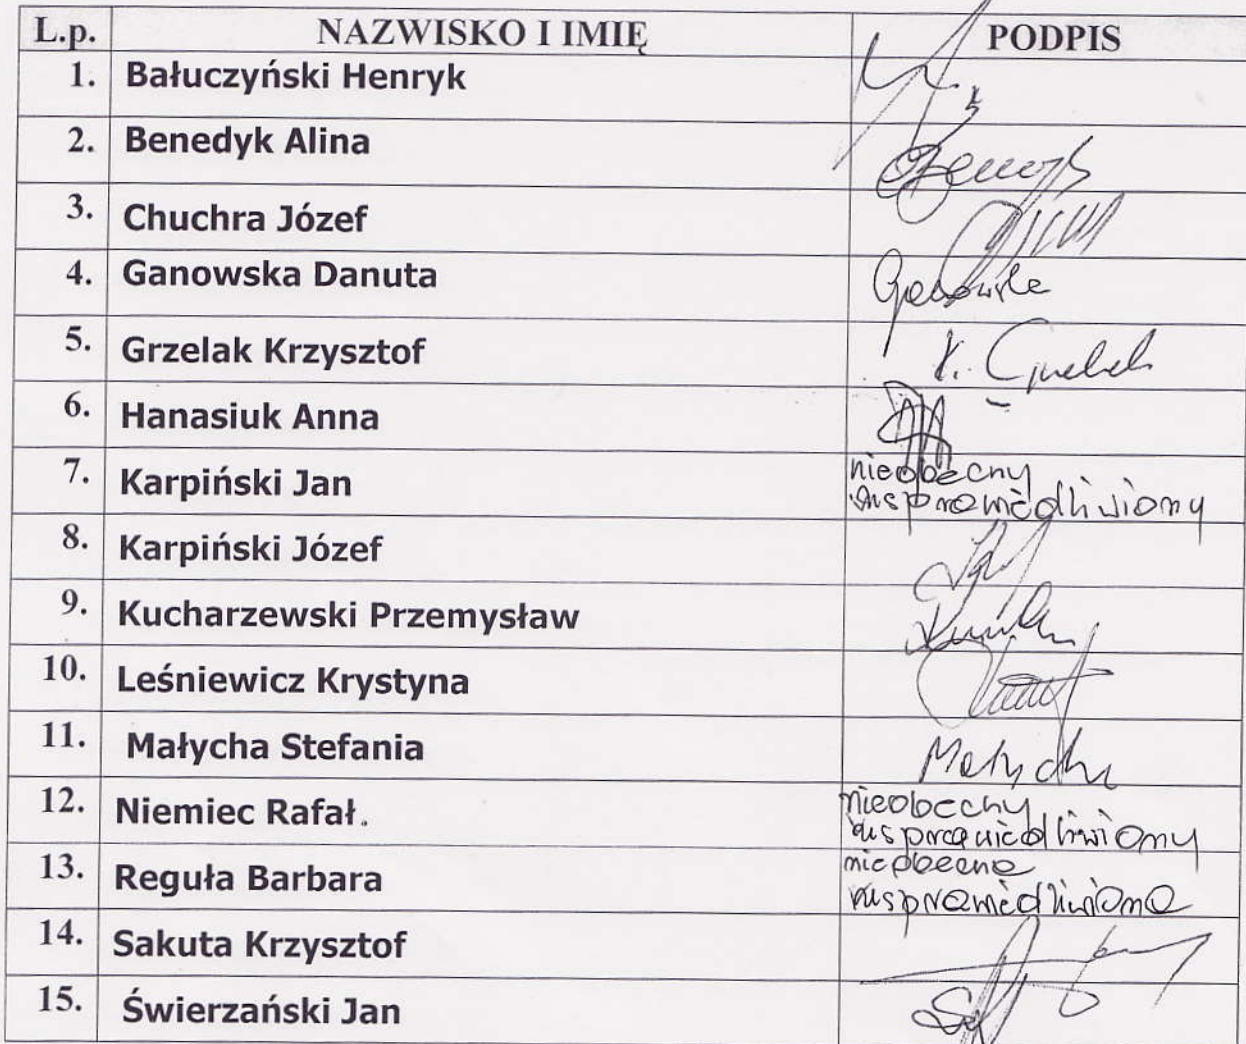 L.p. NAZWISKO I IMIĘ PODPIS
1. Bałuczyński Henryk
2. Benedyk Alina
3. Chuchra Józef
4. Ganowska Danuta
5. Grzelak Krzysztof K. Grzelak
6. Hanasiuk Anna
7. Karpiński Jan nieobecny
usprawiedliwiony
8. Karpiński Józef
9. Kucharzewski Przemysław
10. Leśniewicz Krystyna
11. Małycha Stefania Małycha
12. Niemiec Rafał. nieobecny
usprawiedliwiony
13. Reguła Barbara nieobecna
usprawiedliwiona
14. Sakuta Krzysztof
15. Świerzański Jan